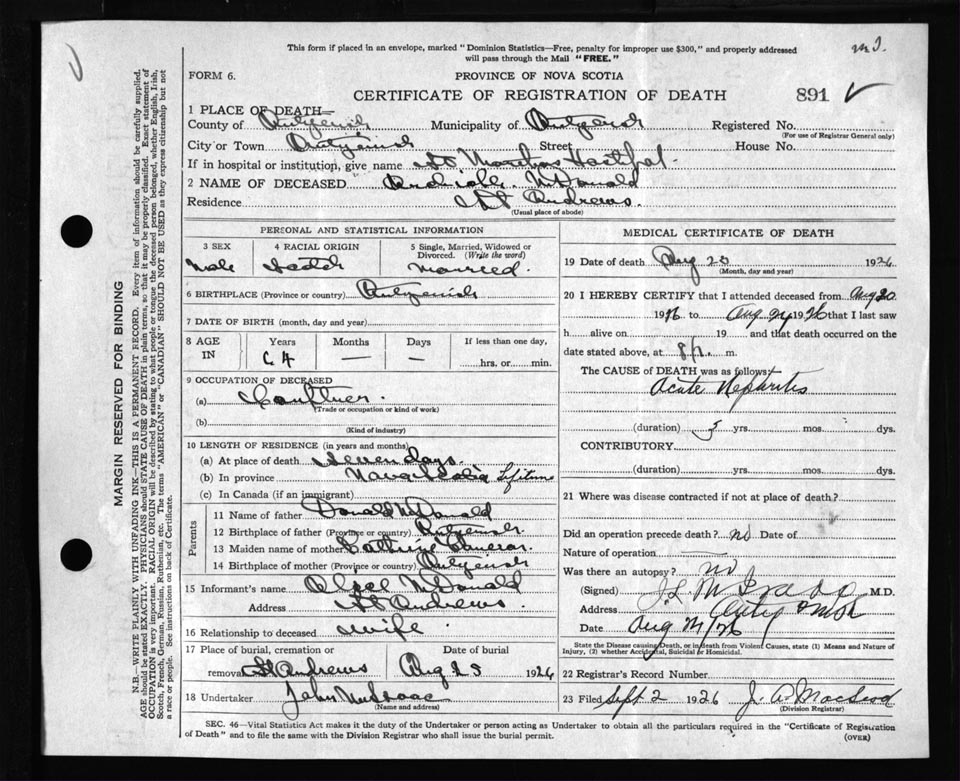 This form if placed in an envelope, marked "Dominion Statistics—Free, penalty for improper use $300," and properly addressed
will pass through the Mail "FREE."
FORM 6.
PROVINCE OF NOVA SCOTIA
CERTIFICATE OF REGISTRATION OF DEATH
891
MARGIN RESERVED FOR BINDING
N.B.—WRITE PLAINLY WITH UNFADING INK—THIS IS A PERMANENT RECORD. Every item of information should be carefully supplied.
AGE should be stated EXACTLY. PHYSICIANS should STATE CAUSE OF DEATH in plain terms, so that it may be properly classified. Exact statement of
OCCUPATION is very important. RACIAL ORIGIN will be described by stating to what people or tongue the deceased person belonged, whether English, Irish,
Scotch, French, German, Russian, Ruthenian, etc. The terms "AMERICAN" or "CANADIAN" SHOULD NOT BE USED as they express citizenship but not
a race or people. See instructions on back of Certificate.
1 PLACE OF DEATH—
County of Antigonish Municipality of Antigonish Registered No.
(For use of Registrar General only)
City or Town Antigonish Street House No.
If in hospital or institution, give name St Marthas Hospital
2 NAME OF DECEASED McDonald
Residence St Andrews
(Usual place of abode)
PERSONAL AND STATISTICAL INFORMATION
3 SEX
Male
4 RACIAL ORIGIN
Scotch
5 Single, Married, Widowed or
Divorced. (Write the word)
Married
6 BIRTHPLACE (Province or country) Antigonish
7 DATE OF BIRTH (month, day and year)
8 AGE
IN
Years
Months
—
Days
—
If less than one day,
hrs. or min.
9 OCCUPATION OF DECEASED
(a)
(Trade or occupation or kind of work)
(b)
(Kind of industry)
10 LENGTH OF RESIDENCE (in years and months)
(a) At place of death Seven days
(b) In province Nova Scotia Lifetime
(c) In Canada (if an immigrant)
Parents
11 Name of father Donald McDonald
12 Birthplace of father (Province or country) Antigonish
13 Maiden name of mother
14 Birthplace of mother (Province or country) Antigonish
15 Informant's name McDonald
Address St Andrews
16 Relationship to deceased wife
17 Place of burial, cremation or
removal St Andrews
Date of burial
Aug 25 1926
18 Undertaker John McIsaac
(Name and address)
MEDICAL CERTIFICATE OF DEATH
19 Date of death Aug 1926
(Month, day and year)
20 I HEREBY CERTIFY that I attended deceased from Aug 20
1926 to Aug 24 1926 that I last saw
h alive on 19 and that death occurred on
the date stated above, at 8 p. m.
The CAUSE OF DEATH was as follows:
Acute Nephritis
(duration) 5 yrs. mos. dys.
CONTRIBUTORY
(duration) yrs. mos. dys.
21 Where was disease contracted if not at place of death?
Did an operation precede death? no Date of
Nature of operation
Was there an autopsy? no
(Signed) J. L. M.D.
Address
Date Aug 24/26
State the Disease causing Death, or in death from Violent Causes, state (1) Means and Nature of
Injury, (2) whether Accidental, Suicidal or Homicidal.
22 Registrar's Record Number
23 Filed Sept 2 1926 J. A. MacLeod
(Division Registrar)
SEC. 46—Vital Statistics Act makes it the duty of the Undertaker or person acting as Undertaker to obtain all the particulars required in the "Certificate of Registration
of Death" and to file the same with the Division Registrar who shall issue the burial permit.
(OVER)